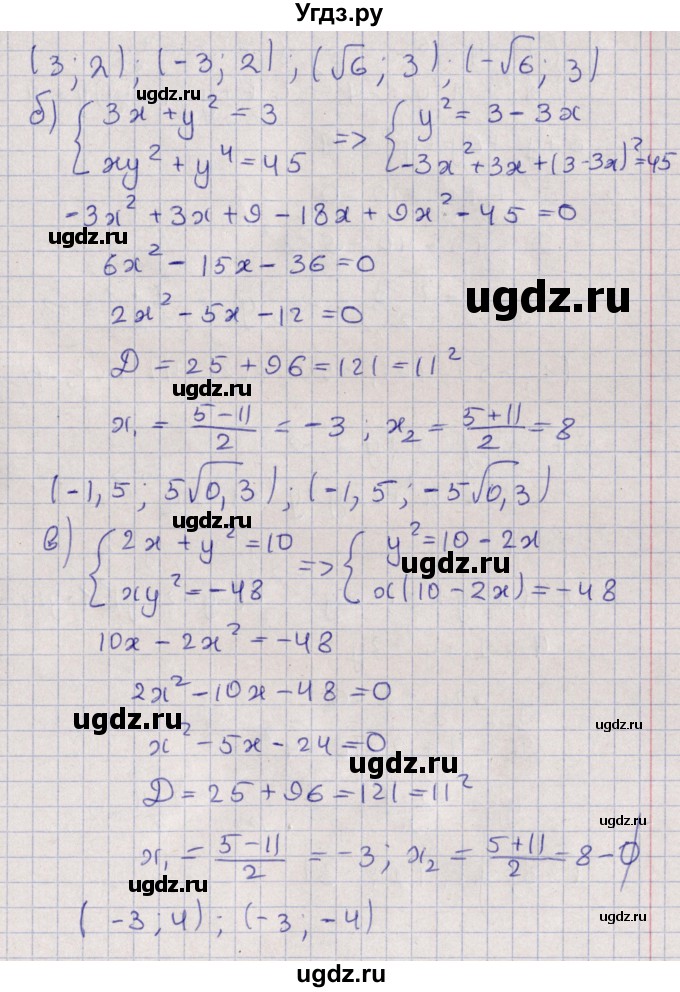 Угдз.ру
(3; 2); (-3; 2); (√6; 3); (-√6; 3)
ugdz.ru
б) { 3x + y² = 3 => { y² = 3 - 3x
{ xy² + y⁴ = 45 { -3x² + 3x + (3-3x)² = 45
-3x² + 3x + 9 - 18x + 9x² - 45 = 0
ugdz.ru
6x² - 15x - 36 = 0
ugdz.ru
2x² - 5x - 12 = 0
Д = 25 + 96 = 121 = 11²
ugdz.ru
x₁ = (5-11)/2 = -3; x₂ = (5+11)/2 = 8
(-1,5; 5√0,3); (-1,5; -5√0,3)
ugdz.ru
в) { 2x + y² = 10 => { y² = 10 - 2x
ugdz.ru
{ xy² = -48 { x(10 - 2x) = -48
ugdz.ru
10x - 2x² = -48
2x² - 10x - 48 = 0
ugdz.ru
ugdz.ru
x² - 5x - 24 = 0
ugdz.ru
Д = 25 + 96 = 121 = 11²
x₁ = (5-11)/2 = -3; x₂ = (5+11)/2 = 8 - ∅
ugdz.ru
(-3; 4); (-3; -4)
ugdz.ru
ugdz.ru